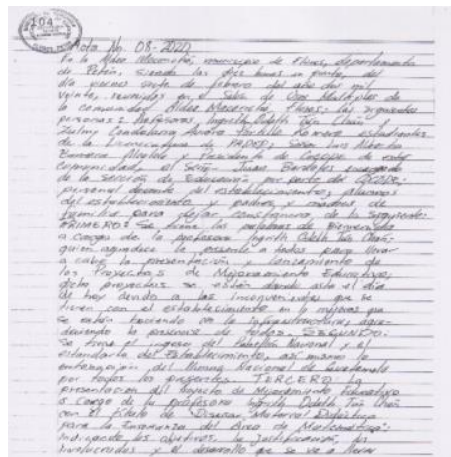 204
Acta No. 08-2020
En la Aldea Macanché, municipio de Flores, departamento
de Petén, siendo las dos horas en punto, del
día viernes siete de febrero del año dos mil
veinte, reunidos en el Salón de Usos Multiples de
la comunidad Aldea Macanché, Flores, las siguientes
personas: Profesoras, Ingrith Odeth Tún Chán y
Zulmy Candelaria Aurora Portillo Romero estudiantes
de la Licenciatura de PADEP; Señor Luis Alberto
Barrera Alcalde y Presidente de Cocode de esta
comunidad, el Señor Juan Bardales encargado
de la Comisión de Educación por parte del COCODE;
personal docente del establecimiento, alumnos
del establecimiento y padres y madres de
familia para dejar constancia de lo siguiente:
PRIMERO: Se tiene las palabras de bienvenida
a cargo de la profesora Ingrith Odeth Tún Chán,
quien agradece la presente a todos para llevar
a cabo la presentación y lanzamiento de
los Proyectos de Mejoramiento Educativo,
dichos proyectos se están dando hasta el día
de hoy devido a los inconvenientes que se
tienen con el establecimiento en mejoras que
se están haciendo en la infraestructura, agra-
deciendo la presencia de todos. SEGUNDO:
Se tiene el ingreso del Pabellón Nacional y el
estandarte del Establecimiento, así mismo la
entonación del Himno Nacional de Guatemala
por todos los presentes. TERCERO: La
presentación del Proyecto de Mejoramiento Educativo
a cargo de la profesora Ingrith Odeth Tún Chán
con el título de Material Didáctico
para la Enseñanza del Área de Matemática;
indicando los objetivos, la justificación, los
involucrados y el desarrollo que se va a llevar